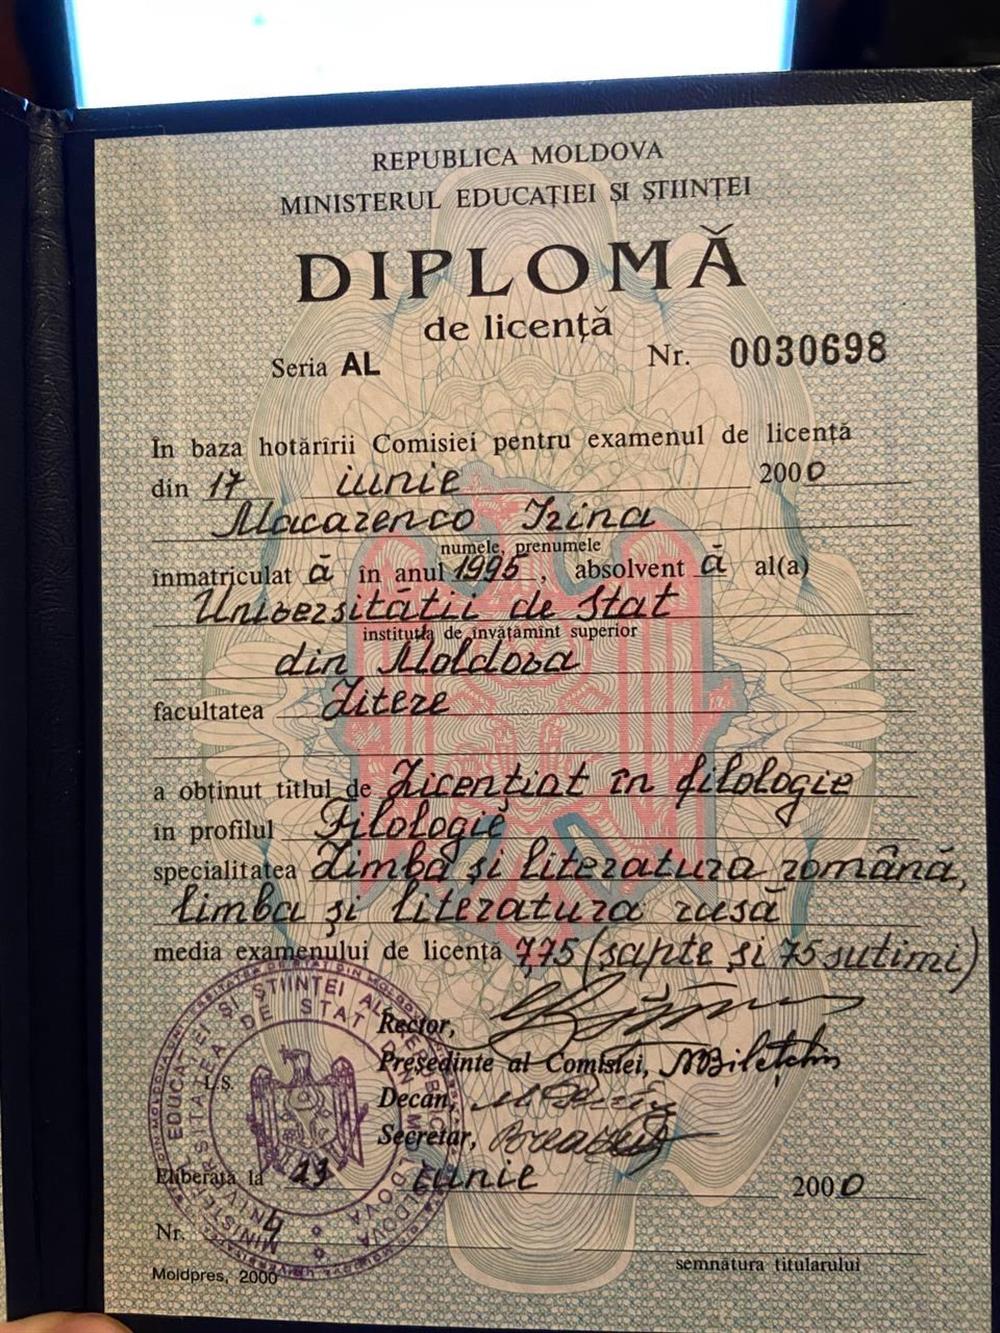 REPUBLICA MOLDOVA
MINISTERUL EDUCAȚIEI ȘI ȘTIINȚEI
DIPLOMĂ
de licență
Seria AL Nr. 0030698
În baza hotărîrii Comisiei pentru examenul de licență
din 17 iunie 2000
Macarenco Irina
numele, prenumele
înmatriculat ă în anul 1995, absolvent ă al(a)
Universității de Stat
instituția de învățămînt superior
din Moldova
facultatea Litere
a obținut titlul de Licențiat în filologie
în profilul Filologie
specialitatea Limba și literatura română,
limba și literatura rusă
media examenului de licență 7,75 (șapte și 75 sutimi)
Rector,
Președinte al Comisiei, Bilețchi
L.Ș.
Decan,
Secretar,
Eliberată la iunie 2000
Nr. 4
semnătura titularului
Moldpres, 2000